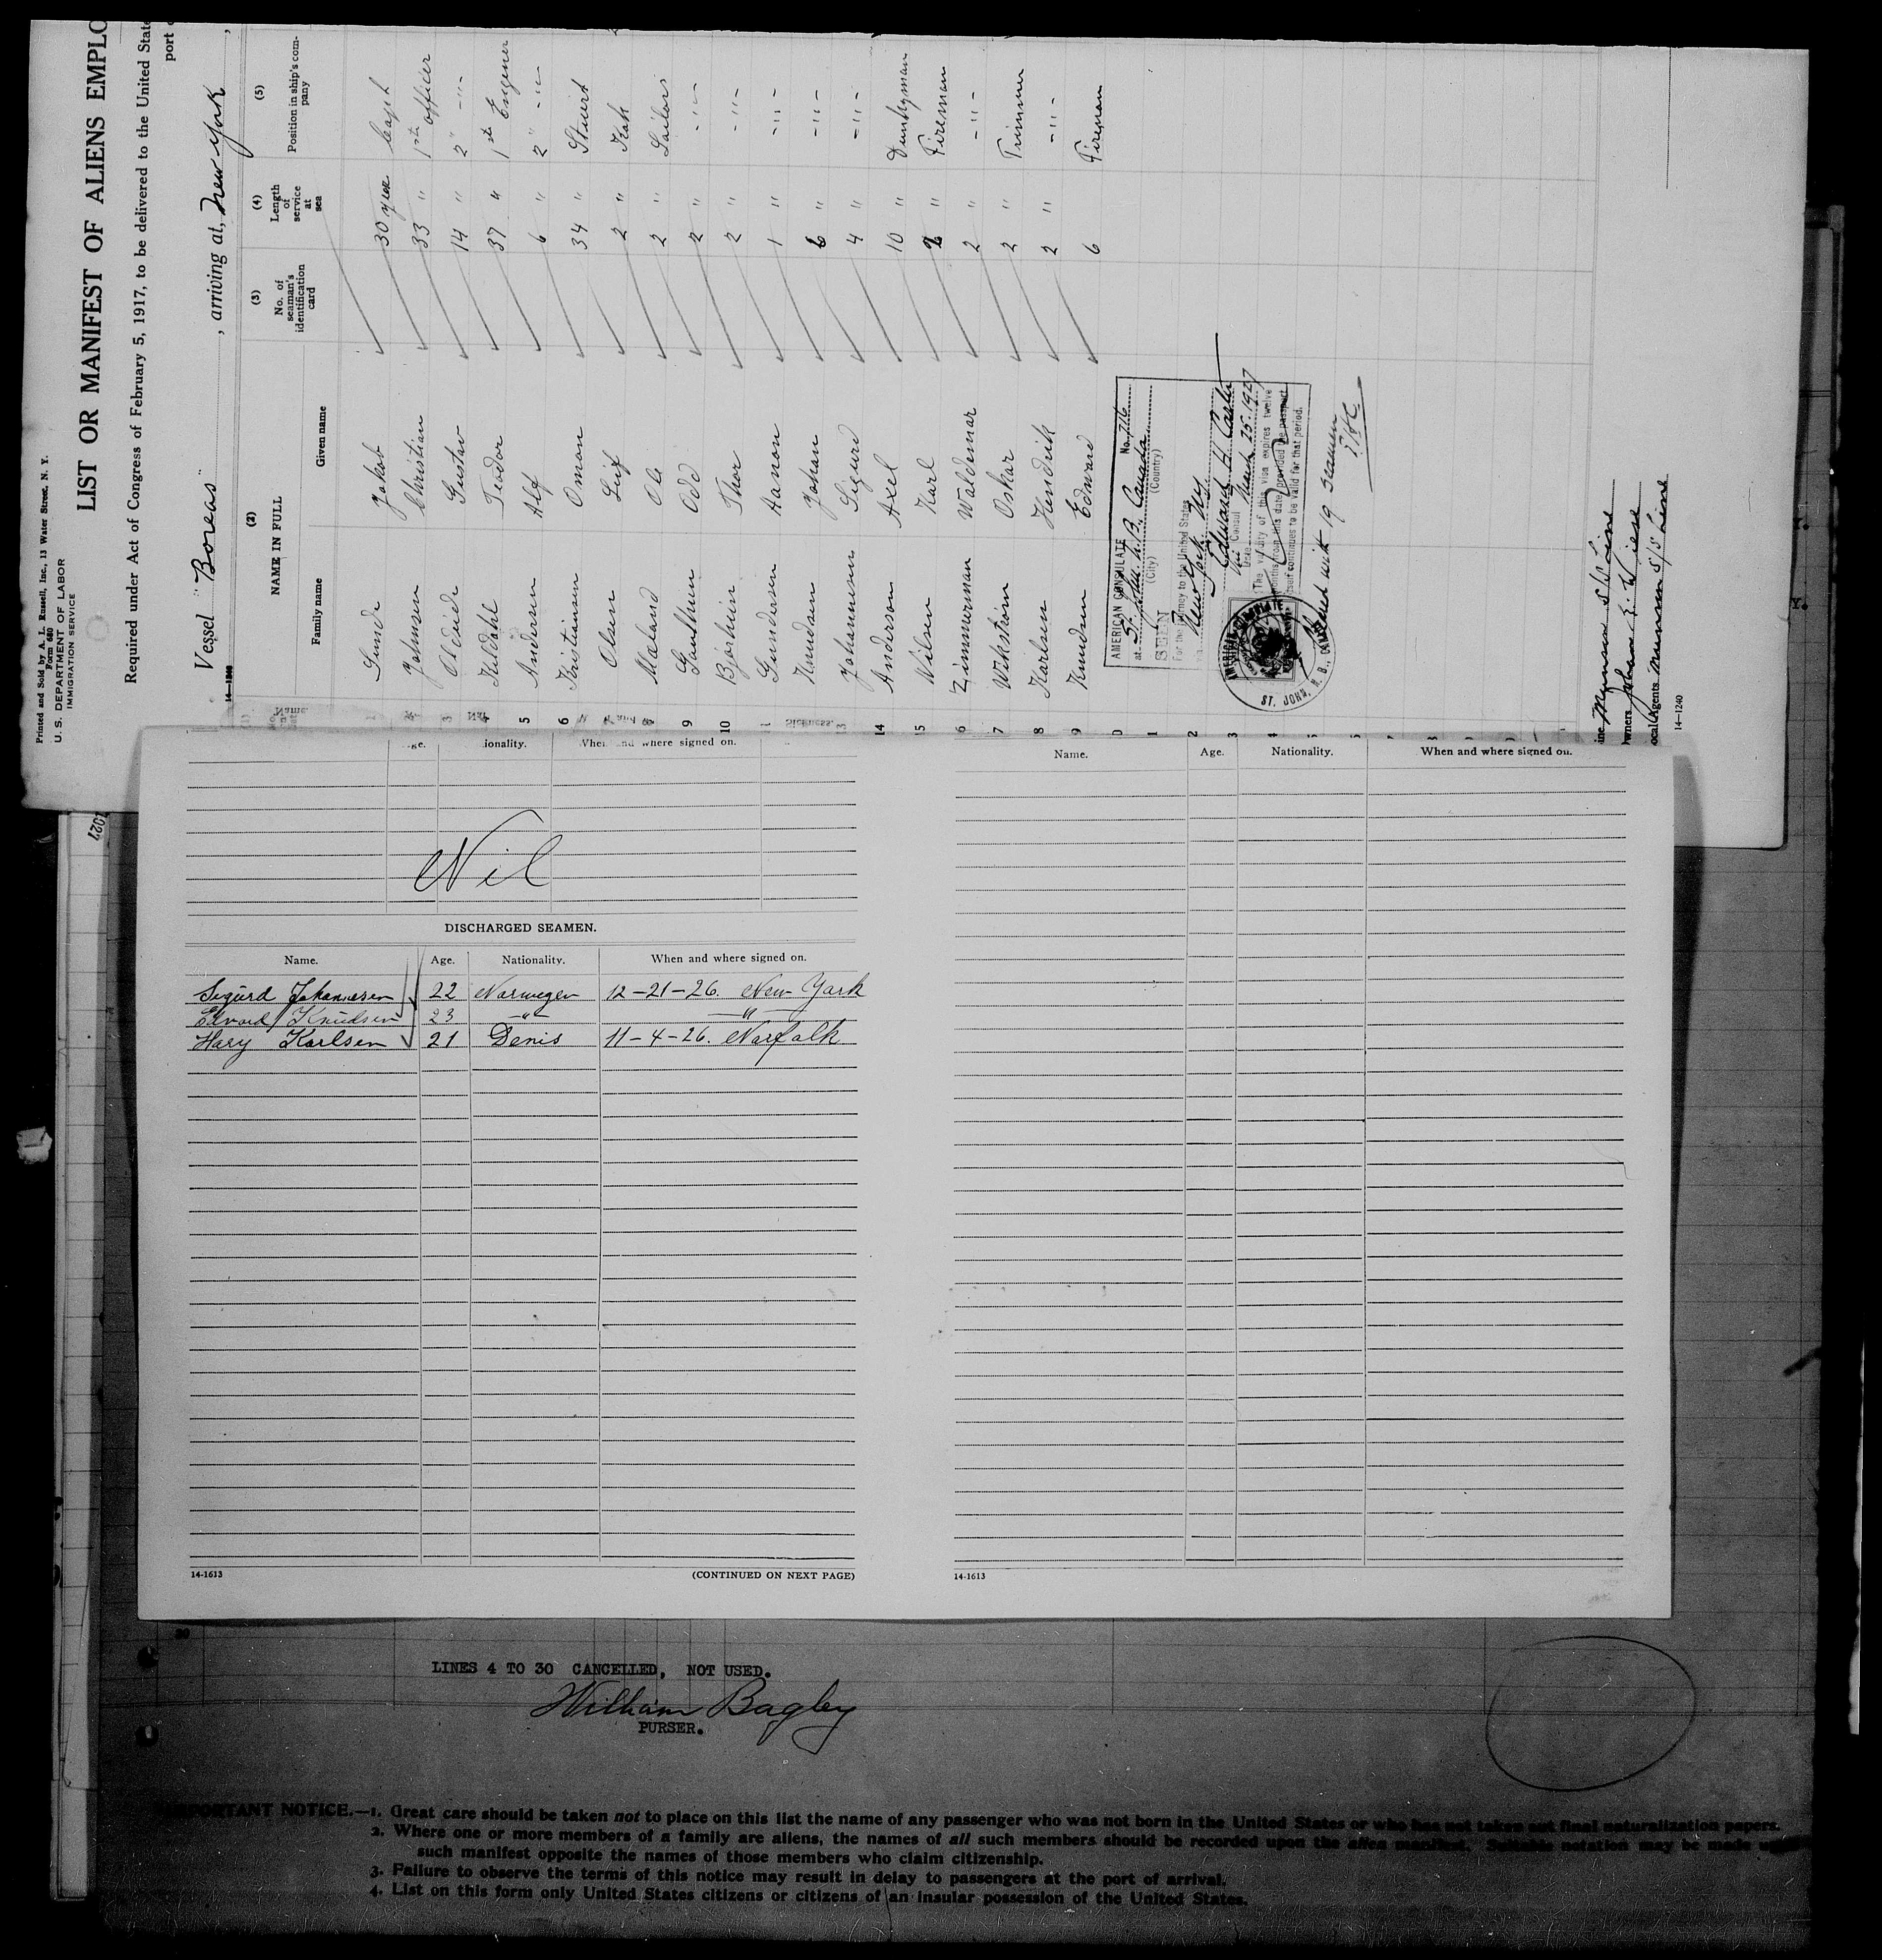 Printed and Sold by A. L. Russell, Inc., 13 Water Street, N. Y.
Form 680
U. S. DEPARTMENT OF LABOR
IMMIGRATION SERVICE
LIST OR MANIFEST OF ALIENS EMPLO
Required under Act of Congress of February 5, 1917, to be delivered to the United Stat
port
Vessel "Boreas" , arriving at, New York ,
14—1240
(2) (3) (4) (5)
NAME IN FULL No. of seaman's identification card Length of service at sea Position in ship's company
Family name Given name
Sunde Jakob 30 year Capt
Johnsen Christian 33 " 1st officer
3 Gustav 14 " 2" -"-
4 Kildahl Teodor 37 " 1st Engener
5 Andersen Alf 6 " 2 " -"-
6 Kristiansen Omon 34 " Stuert
Olsen Leif 2 " Kok
Maland Ole 2 " Sailors
9 Odd 2 " -"-
10 Thor 2 " -"-
1 Gundersen Aanon 1 " -"-
Knudsen Johan 6 " -"-
3 Johannesen Sigurd 4 " -"-
14 Anderson Axel 10 " Dunkyman
15 Nilsen Karl 2 " Fireman
6 Zimmerman Waldemar 2 " -"-
7 Wikström Oskar 2 " Trimmer
8 Karlsen Hendrik 2 " -"-
9 Knudsen Edward 6 Fireman
0
1
2
3
4
AMERICAN CONSULATE No. 716
at St. John, N.B., Canada
(City) (Country)
SEEN
For the journey to the United States
New York N.Y.
Edward H. Carter
Vice Consul
Date March 25, 1927
(The validity of this visa expires twelve
months from this date, provided the passport
itself continues to be valid for that period.
AMERICAN CONSULATE
ST. JOHN, N. B., CANADA
with 19 seamen
Line Munson S/S Line
Owners Johan E.
Local Agents Munson S/S Line
14—1240
Nationality. When and where signed on.
Nil
DISCHARGED SEAMEN.
Name. Age. Nationality. When and where signed on.
Sigurd Johannesen 22 Norwegen 12-21-26. New York
Edvard Knudsen 23 -"- -"-
Hary Karlsen 21 Denis 11-4-26. Norfolk
14-1613 (CONTINUED ON NEXT PAGE)
Name. Age. Nationality. When and where signed on.
14-1613
30
LINES 4 TO 30 CANCELLED, NOT USED.
William Bagley
PURSER.
IMPORTANT NOTICE.—1. Great care should be taken not to place on this list the name of any passenger who was not born in the United States or who has not taken out final naturalization papers.
2. Where one or more members of a family are aliens, the names of all such members should be recorded upon the alien manifest. Suitable notation may be made upon
such manifest opposite the names of those members who claim citizenship.
3. Failure to observe the terms of this notice may result in delay to passengers at the port of arrival.
4. List on this form only United States citizens or citizens of an insular possession of the United States.